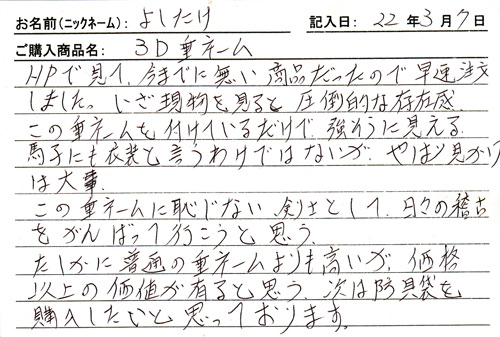 お名前(ニックネーム): よしたけ 記入日: 22年3月7日
ご購入商品名: 3D垂ネーム
HPで見て、今までに無い商品だったので早速注文
しました。いざ現物を見ると圧倒的な存在感。
この垂ネームを付けているだけで強そうに見える。
馬子にも衣装と言うわけではないが、やはり見かけ
は大事。
この垂ネームに恥じない剣士として、日々の稽古
をがんばって行こうと思う。
たしかに普通の垂ネームよりも高いが、価格
以上の価値が有ると思う。次は防具袋を
購入したいと思っております。